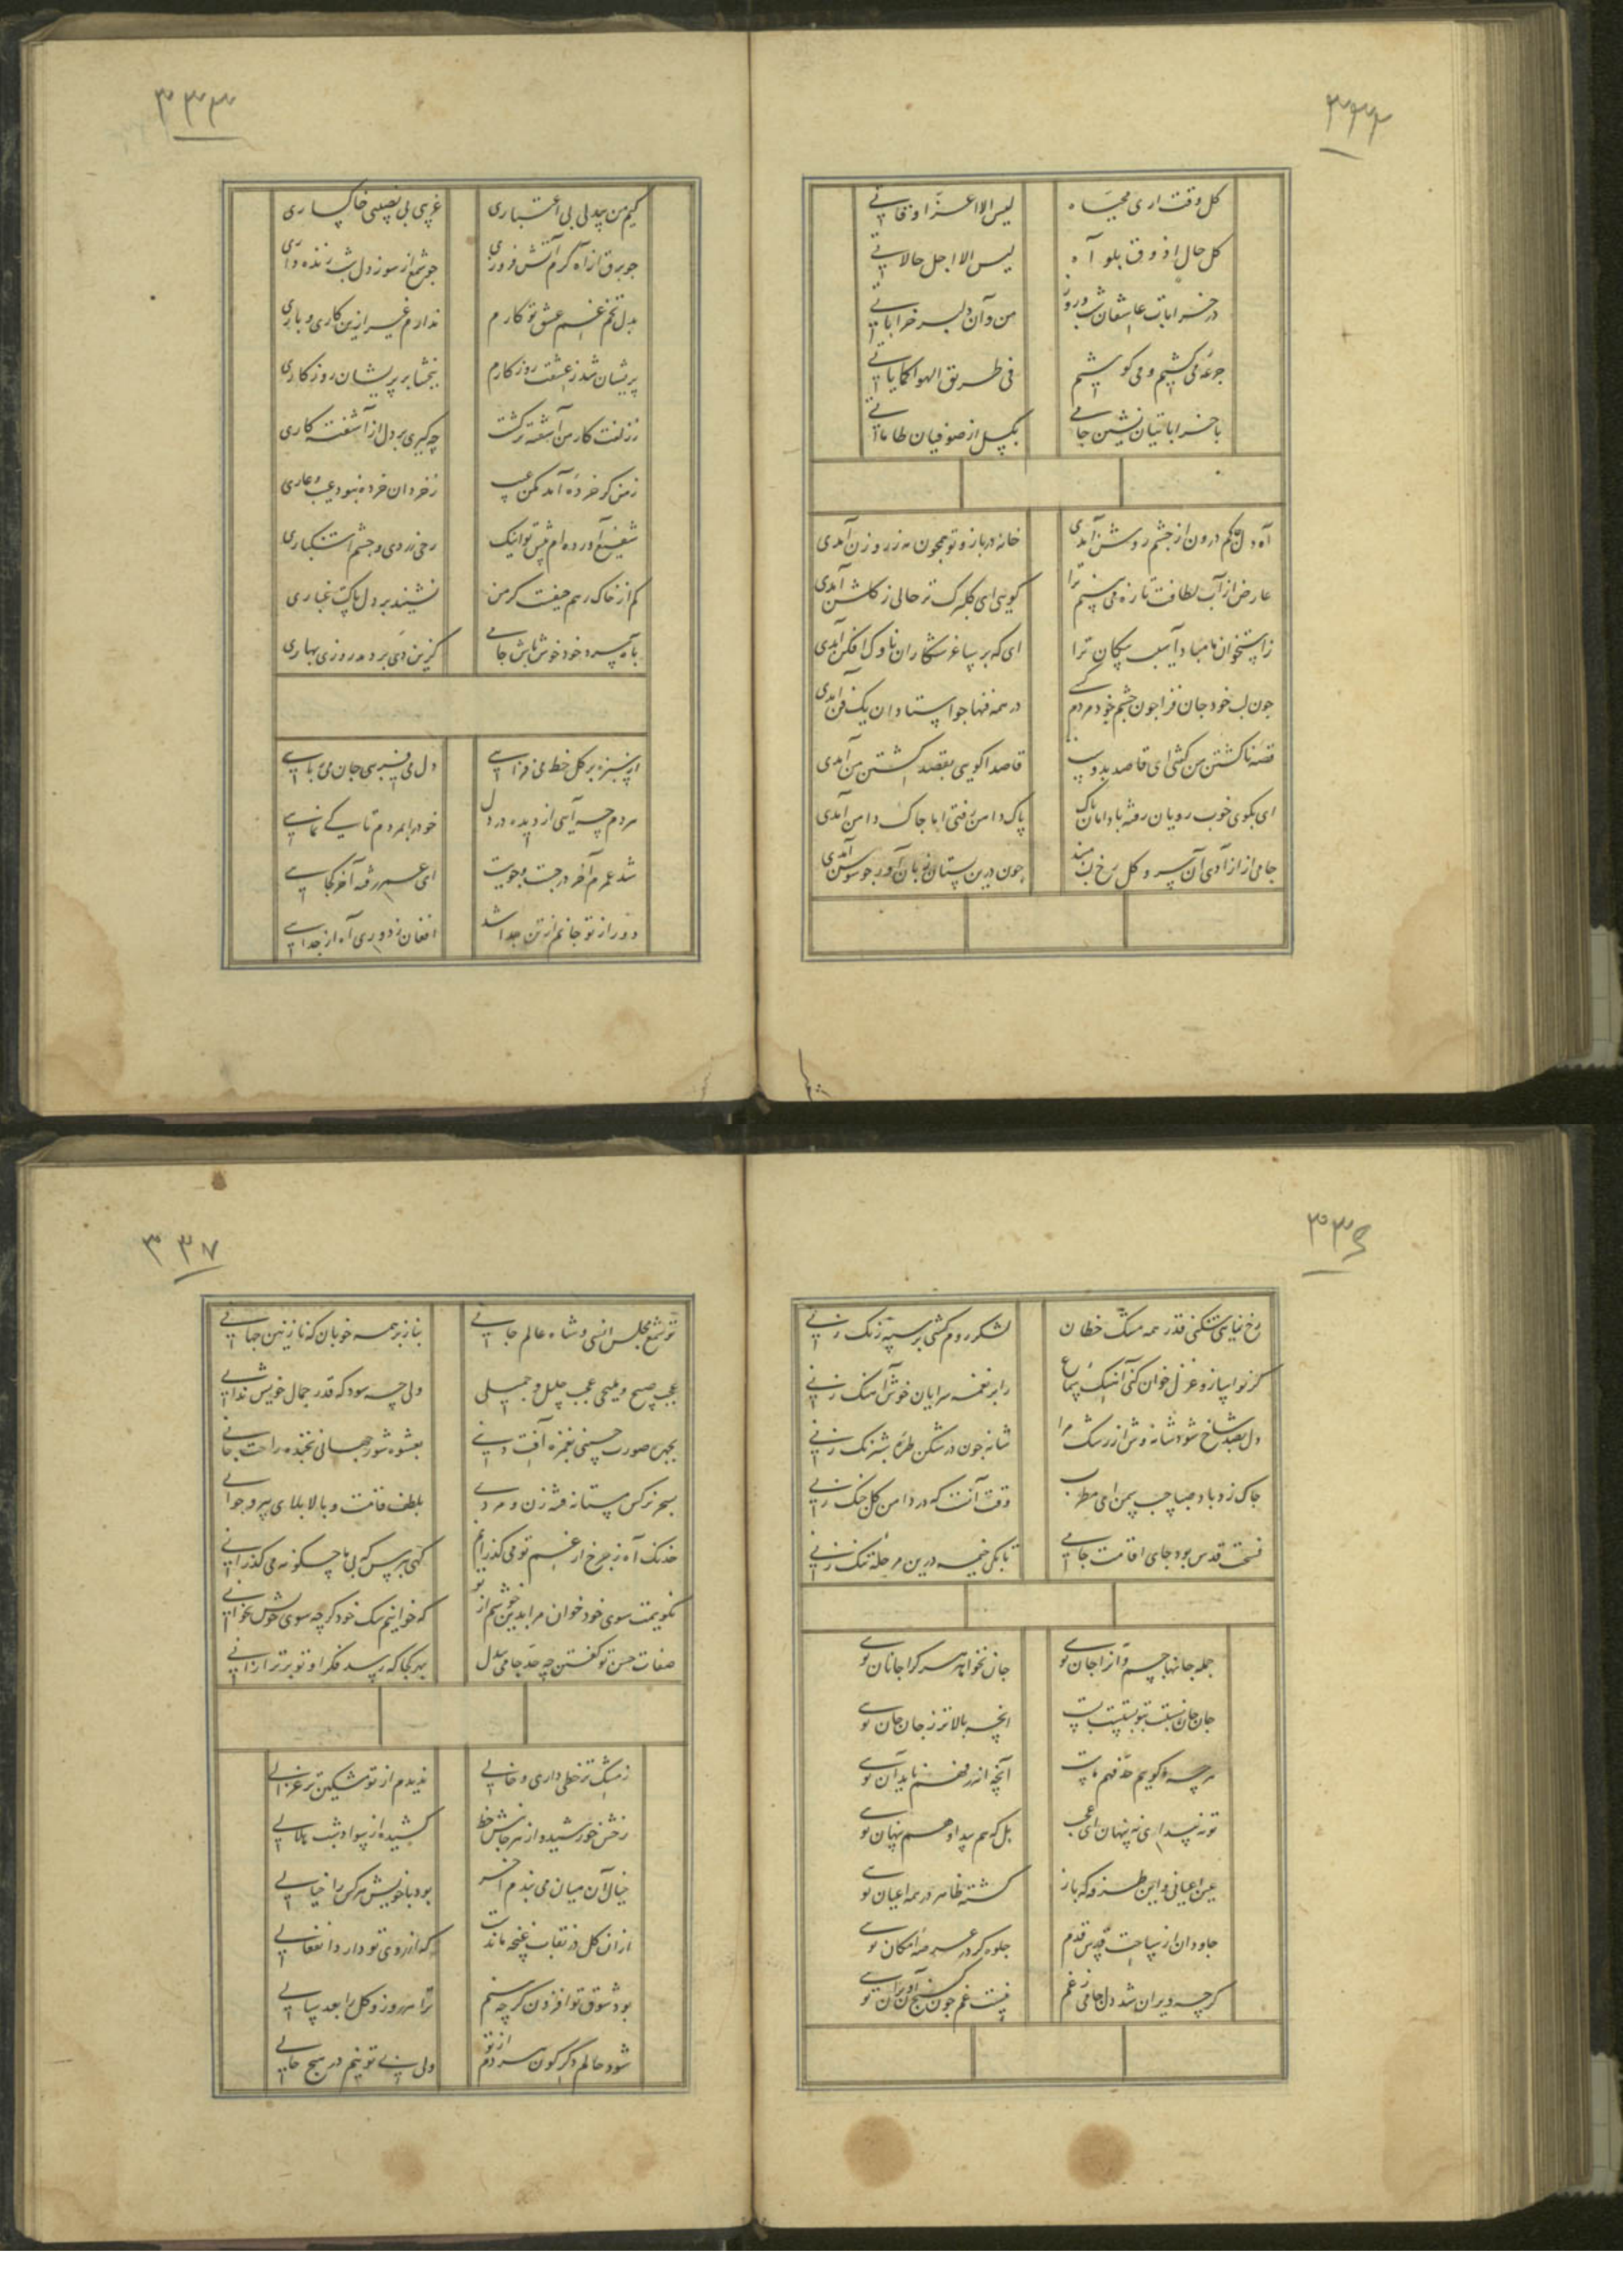 ۳۳۲
کل وقت اری محیاه
لیس الا اعز اوقاتی
کل حال اذوق بلواه
لیس الا اجل حالاتی
در خرابات عاشقان شب و روز
من و آن دلبر خراباتی
جرعه می کشیم و می کوشیم
فی طریق الهوا کمایاتی
با خراباتیان نشین جامی
بکسل از صوفیان طاماتی
آه دل محکم درون از چشم روشن آمدی
خانه در باز و تو همچون مه ز روزن آمدی
عارض از آب لطافت تازه می بینم ترا
کویی ای کلبرک تر حالی ز کلشن آمدی
ز استخوان نامباد آسیب پیکان ترا
ای که بر ساغر شکاران ناوک افکن آمدی
چون لب خود جان فزا چون چشم خود مردم کشی
در همه فنها جو استادان یک فن آمدی
قصه ناکشتن من کشی ای قاصد بدوست
قاصدا کویی بقصد کشتن من آمدی
ای بکوی خوب رویان رفته با دامان پاک
پاک دامن رفتی اما جاک دامن آمدی
جامی از آزادی آن سرو کل رخ دم مزن
چون درین بستان زبان آور جو سوسن آمدی
۳۳۳
کیم من بیدلی بی اعتباری
غریبی بی نصیبی خاکساری
جو برق از آه کرم آتش فروزی
جو شمع از سوز دل شب زنده داری
بدل تخم غم عشق تو کارم
ندارم غیر ازین کاری و باری
پریشان شد ز عشقت روز کارم
ببخشا بر پریشان روز کاری
ز زلفت کار من آشفته ترکشت
چه کیری بر دل از آشفته کاری
ز من کر خرده آمد مکن عیب
ز خردان خرده نبود عیب و عاری
شفیع آورده ام پیش تو اینک
رخ زردی و چشم اشکباری
کم از خاک رهم حیفست کز من
نشیند بر دل پاکت غباری
باه سرد خود خوش باش جامی
کزین دی بر دمد روزی بهاری
از سبزه بر کل خط می فزایی
دل می فریبی جان می ربایی
مردم چه آیی از دیده در دل
خود را بمردم تا کی نمایی
شد عمرم آخر در جست و جویت
ای عمر رفته آخر کجایی
دور از تو جانم از تن جدا شد
افغان ز دوری آه از جدایی
۳۳۶
رخ نمایی شکنی قدر همه مشک خطان
لشکر روم کشی بر سپه زنک زنی
کر نوا سازد و غزل خوان کنی آهنک سماع
راه بر نغمه سرایان خوش آهنک زنی
دل بصد شاخ شود شانه وش از رشک مرا
شانه چون در شکن طره شبرنک زنی
جاک زد باد صبا جیب سمن ای مطرب
وقت آنست که در دامن کل چنک زنی
فسحت قدس بود جای اقامت جامی
تا بکی خیمه درین مرحله تنک زنی
جمله جانها جسم و آنرا جان تویی
جان نخواهد هر کرا جانان تویی
جان جان نسبت بتو بستست پست
انچه بالاتر ز جان جان تویی
هر چه کویم حد فهم ماست
آنچه اندر فهم ناید آن تویی
تو نه پیدایی نه پنهان ای عجب
بل که هم پیدا و هم پنهان تویی
عین اعیانی و این طرفه که باز
کشته ظاهر در همه اعیان تویی
جاودان از ساحت قدس قدم
جلوه کر در عرصه امکان تویی
کرچه ویران شد دل جامی ز غم
نیست غم چون کنج آن ویران تویی
۳۳۷
تو شمع مجلس انسی و شاه عالم جانی
بناز بر همه خوبان که نازنین جهانی
عجب صبیح و ملیحی عجب جلیل و جمیلی
ولی چه سود که قدر جمال خویش ندانی
بجهره صورت حسنی بغمزه آفت دینی
بعشوه شور جهانی بخنده راحت جانی
بسحر نرکس مستانه فتنه زن و مردی
بلطف قامت و بالا بلای پیر و جوانی
خدنک آه ز جرخ از غم تو می کذرانم
کهی نپرس که بی ما چکونه می کذرانی
نکویمت سوی خود خوان مرا بدین خوشم از تو
که خوانیم سک خود کر چه سوی خویش نخوانی
صفات حسن تو کفتن چه حد جامی بیدل
بهر کجا که رسد فکر او تو برتر ازانی
ز مشک تر خطی داری و خالی
ندیدم از تو مشکین تر غزالی
رخش خورشید و از هر جانبش خط
کشیده از سواد شب هلالی
خیال آن میان می بندم آخر
بود با خویش هر کس را خیالی
ازان کل در نقاب غنچه ماندست
که از روی تو دارد انفعالی
بود شوق تو افزون کرچه بینم
ترا هر روز و کل را بعد سالی
شود حالم دکرکون هر دم از تو
ولی بی تو نیم در هیچ حالی